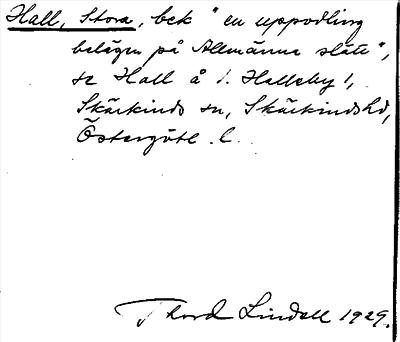 Hall, Stora, bek "en uppodling
belägen på Allmänna slätt",
se Hall å 1. Helleby 1,
Skärkinds sn, Skärkinds hd,
Östergötl. l.
Thord Lindell 1929.